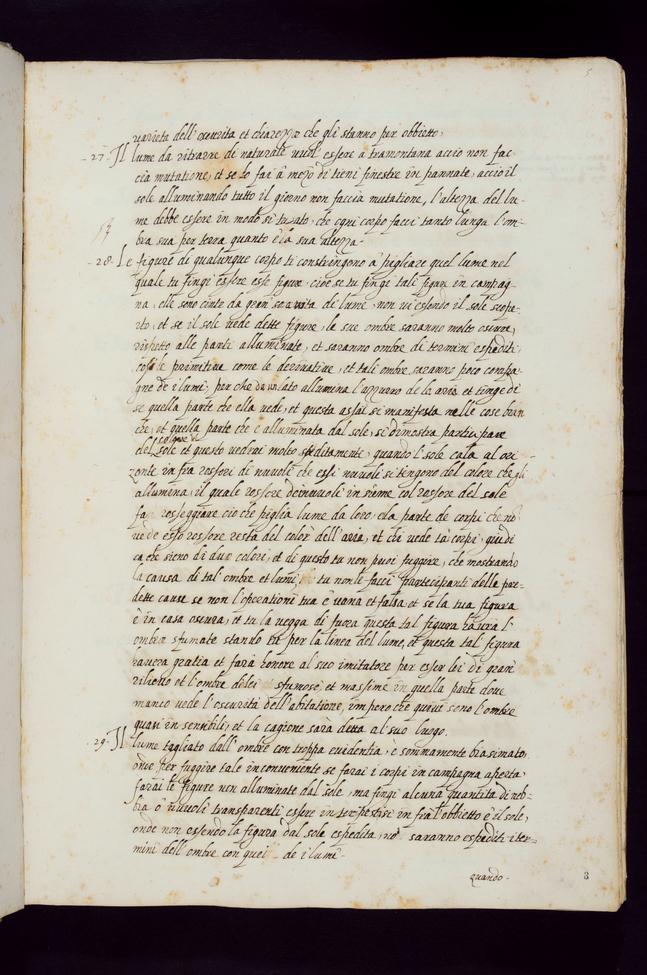 5
varieta dell'oscurita et chiarezze che gli stanno per obbietto.
27. Il lume da ritrarre di naturale vuol essere à tramontana accio non fac-
cia mutatione, et se lo fai à mezo di tieni finestre in pannate, accio il
sole alluminando tutto il giorno non faccia mutatione, l'altezza del lu-
me debbe essere in modo situato, che ogni corpo facci tanto lunga l'om-
bra sua per terra quanto è la sua altezza.
28. Le figure di qualunque corpo ti constringono à pigliare quel lume nel
quale tu fingi essere esse figure cioe se tu fingi tali figure in campag-
na, elle sono cinte da gran somma di lume, non vi essendo il sole scope-
rto, et se il sole vede dette figure, le sue ombre saranno molto oscure,
rispetto alle parti alluminate, et saranno ombre di termini espediti,
cosi le primitive come le derivative, et tali ombre saranno poco compa-
gne de i lumi, per che da un lato allumina l'azzurro de la aria et tinge di
se quella parte che ella vede, et questa assai si manifesta nelle cose bian
che, et quella parte che è alluminata dal sole, si dimostra participare
del colore del sole et questo vedrai molto speditamente, quando l'sole cala al ori-
zonte in fra rossori di nuvoli che essi nuvoli si tengono del colore che gli
allumina, il quale rossore de nuvoli in sieme col rossore del sole
fa rosseggiare cio che piglia lume da loro, e la parte de corpi che nō
vede esso rossore resta del color dell'aria, et chi vede ta corpi, giudi
ca che sieno di due colori, et di questo tu non puoi fuggire, che mostrando
la causa di tal'ombre et lumi, tu non le facci participanti della pre-
dette cause se non l'operationi tua è vana et falsa, et se la tua figura
è in casa oscura, et tu la vegga di fuora questa tal figura havra l'
ombre sfumate stando tu per la linea del lume, et questa tal figura
havera gratia et farà honore al suo imitatore per esser lei di gran
rilievo et l'ombre dolci sfumose, et massime in quella parte dove
manco vede l'oscurità dell'abitatione, impero che quivi sono l'ombre
quasi in sensibili, et la cagione sarà detta al suo luogo.
29. Il lume tagliato dall'ombre con troppa evidentia, è sommamente biasimato,
onde per fuggire tale inconveniente se farai i corpi in campagna aperta
farai le figure non alluminate dal sole, ma fingi alcuna quantita di neb-
bia ò nuvoli transparenti essere in terpostise in frà l'obbietto è il sole,
onde non essendo la figura dal sole espedita, nō saranno espediti i ter-
mini dell'ombre con quei de i lumi.
quando.
3